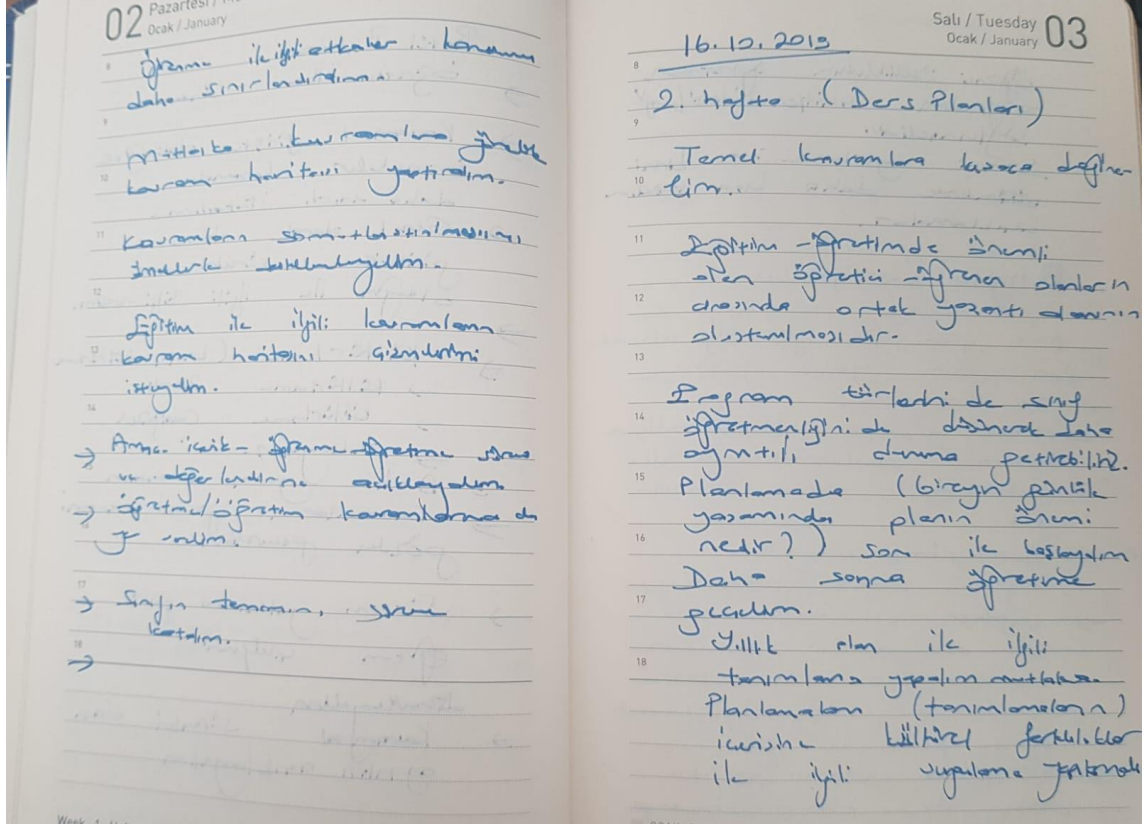 02 Pazartesi / M
Ocak / January
8
Öğrenme ile ilgili etkenler konusunu
daha sınırlandırdım.
9
Mutlaka kavramlara yönelik
10 kavram haritası yaptıralım.
11 Kavramların somutlaştırılmasını
örneklerle
12
Eğitim ile ilgili kavramların
13 kavram haritasını çizmelerini
isteyelim.
14
→ Amaç içerik - öğrenme-öğretme süreci
ve değerlendirme açıklayalım.
→ öğretme/öğretim kavramlarına da
yer verelim.
17
→ Sınıfın tamamını sürece
katalım.
18
→
Salı / Tuesday 03
Ocak / January
16.10.2019
8
2. hafta (Ders Planları)
9
Temel kavramlara kısaca değine-
10 lim.
11 Eğitim-öğretimde önemli
olan öğretici-öğrenen olanların
12 arasında ortak yaşantı alanının
oluşturulmasıdır.
13
Program türlerini de sınıf
14 öğretmenliğini de düşünerek daha
ayrıntılı duruma getirebiliriz.
15 Planlamada (bireyin günlük
yaşamında planın önemi
16 nedir?) soru ile başlayalım
Daha sonra öğretime
17 geçelim.
Yıllık plan ile ilgili
18 tanımlama yapalım mutlaka.
Planlamaların (tanımlamaların)
içerisine kültürel farklılıklar
ile ilgili uygulama yapılmalı